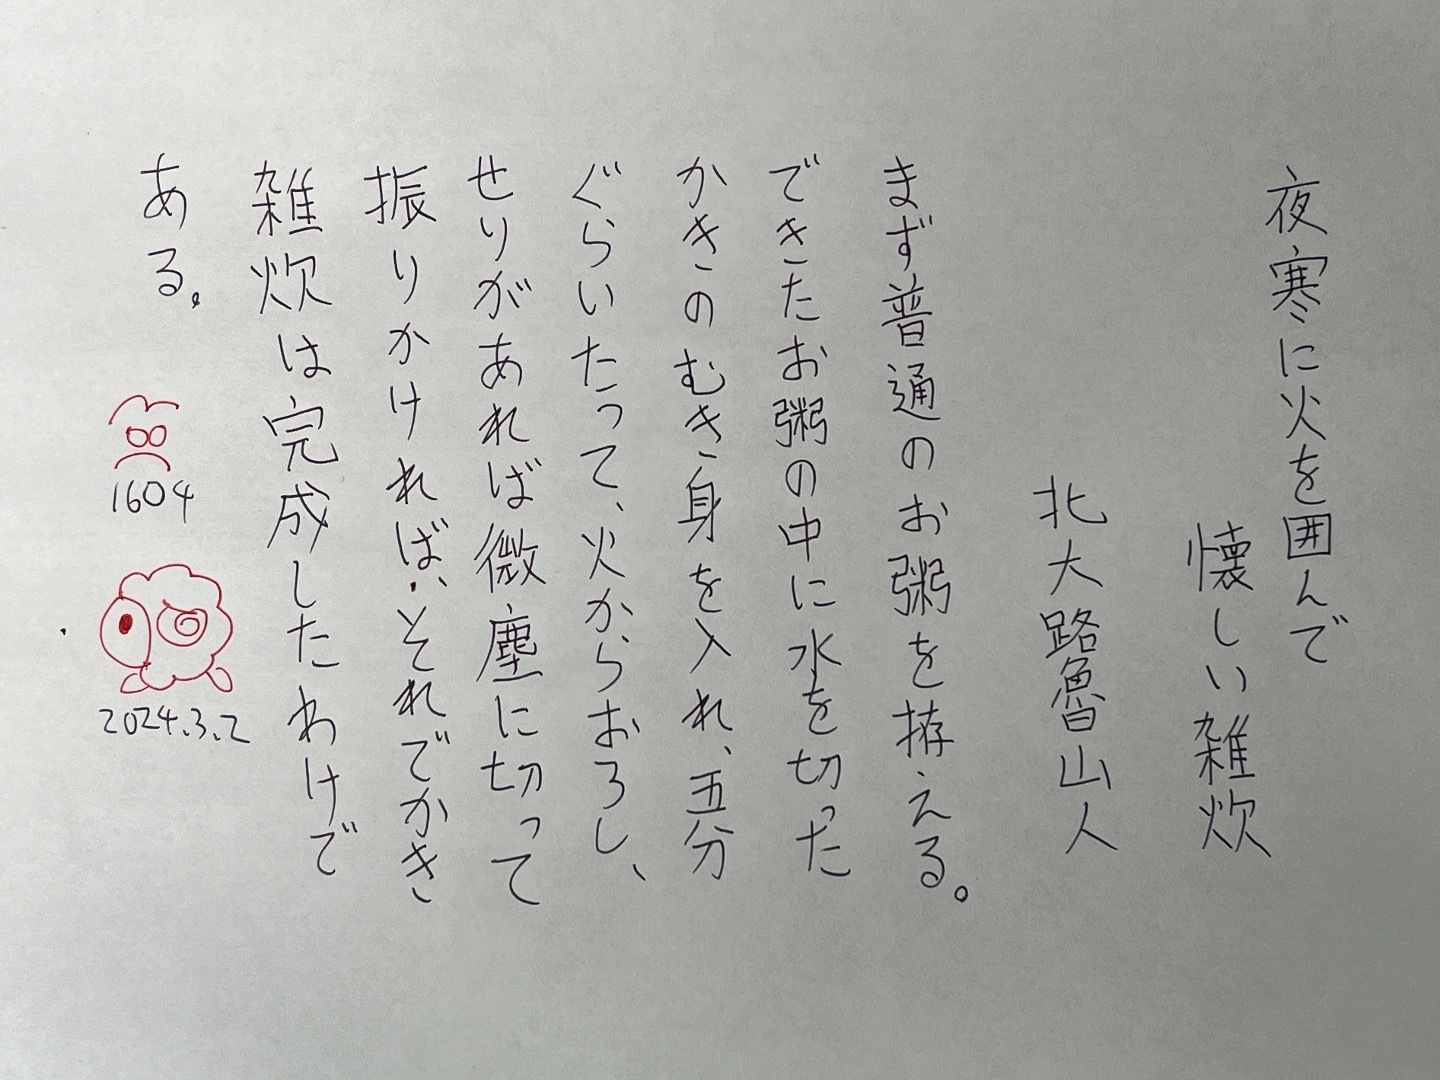 夜寒に火を囲んで
懐しい雑炊
北大路魯山人
まず普通のお粥を拵える。
できたお粥の中に水を切った
かきのむき身を入れ、五分
ぐらいたって、火からおろし、
せりがあれば微塵に切って
振りかければ、それでかき
雑炊は完成したわけで
ある。
1604
2024.3.2